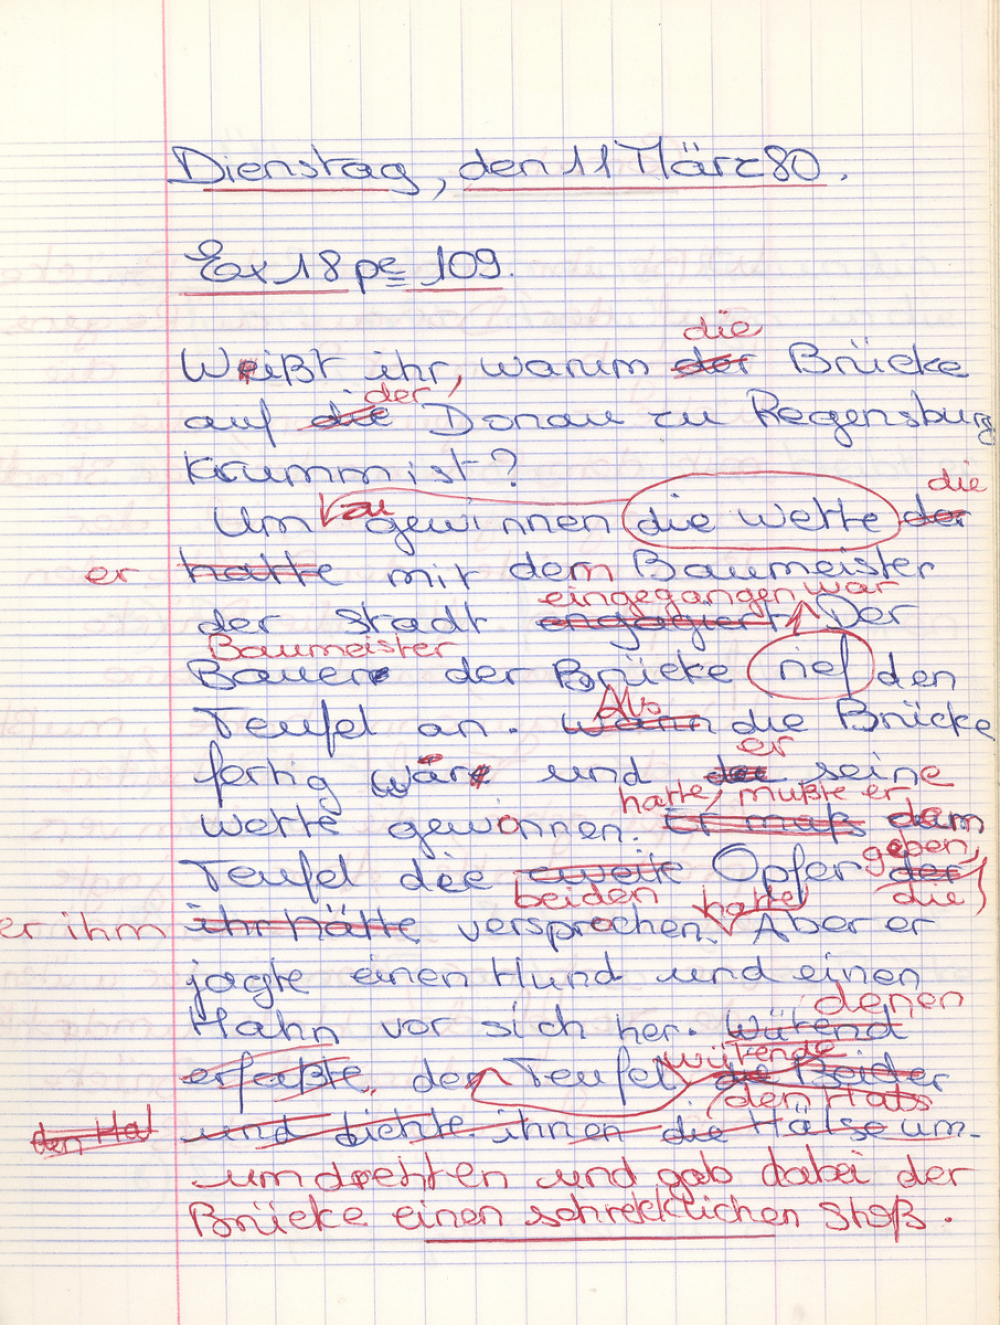 Dienstag, den 11 März 80.
Ex 18 pe 109.
die
Weißt ihr, warum der Brücke
der
auf die Donau zu Regensburg
krumm ist?
die
Um zu gewinnen die Wette der
er hatte mit dem Baumeister
eingegangen war
der Stadt engagiert. Der
Baumeister
Bauer der Brücke rief den
Als
Teufel an. Wann die Brücke
er
fertig war und der seine
hatte, mußte er
Wette gewonnen. Er maß dem
geben,
Teufel die zweite Opfer der
beiden die
hatte
er ihm ihr hätte versprochen. Aber er
jagte einen Hund und einen
denen
Hahn vor sich her. Wütend
wütende
erfaßte, der Teufel die Beider
den Hals
den Hal und dichte ihnen die Hälse um.
umdrehten und gab dabei der
Brücke einen schrecklichen Stoß.